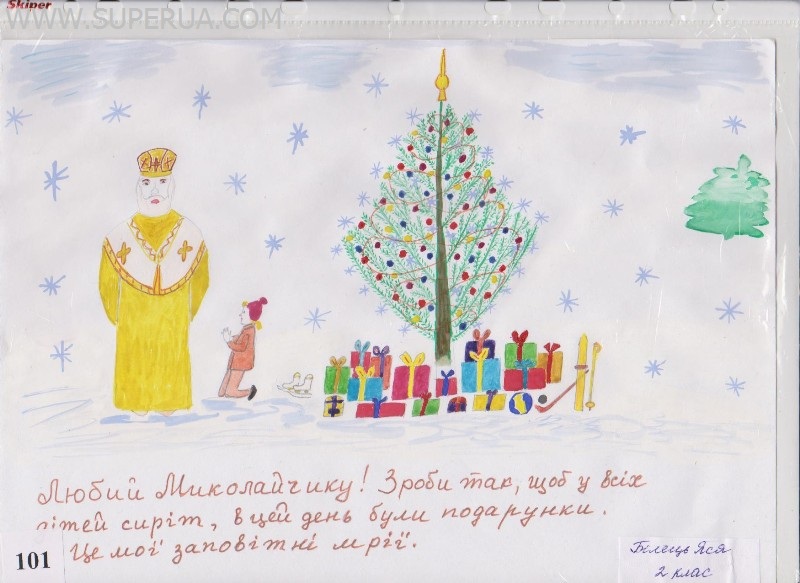 Skiper
WWW.SUPERUA.COM
Любий Миколайчику! Зроби так, щоб у всіх
дітей сиріт, в цей день були подарунки.
Це мої заповітні мрії.
101
Білець Яся
2 клас